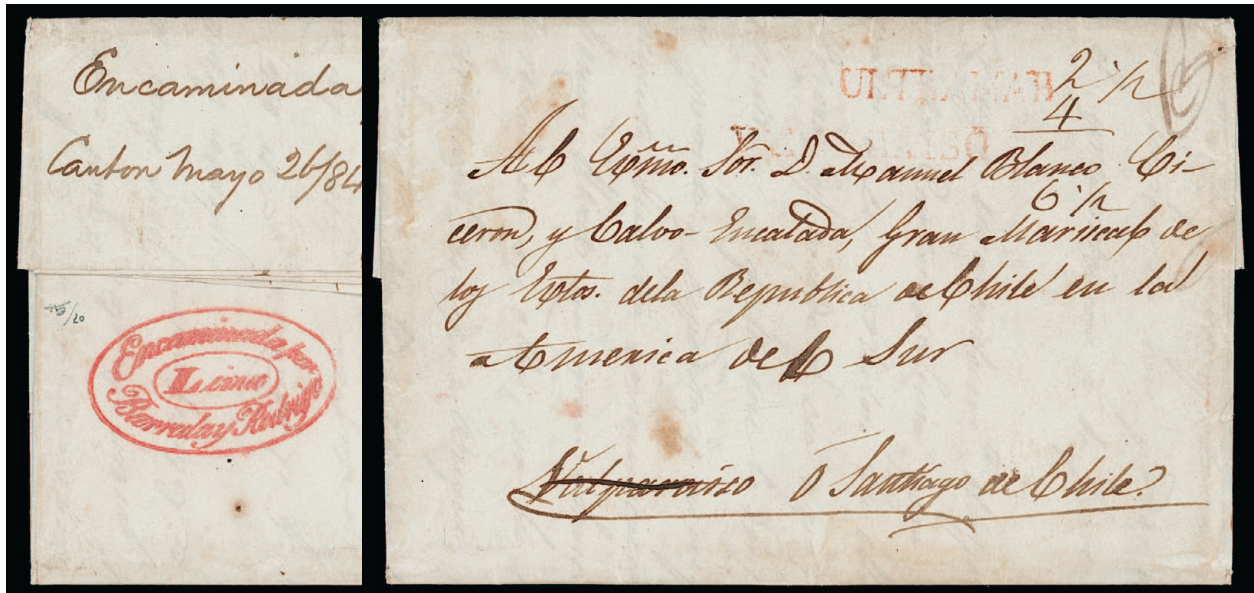 Encaminada
Canton Mayo 26/84
Encaminada por
Lima
Barreda y Rodrigo
ULTRAMAR
2
4
Al Exmo. Sor. D. Manuel Blanco Ci-
ceron, y Calvo-Encalada, Gran Mariscal de
los Extos. dela Republica de Chile en la
America del Sur
Valparaiso O Santiago de Chile.